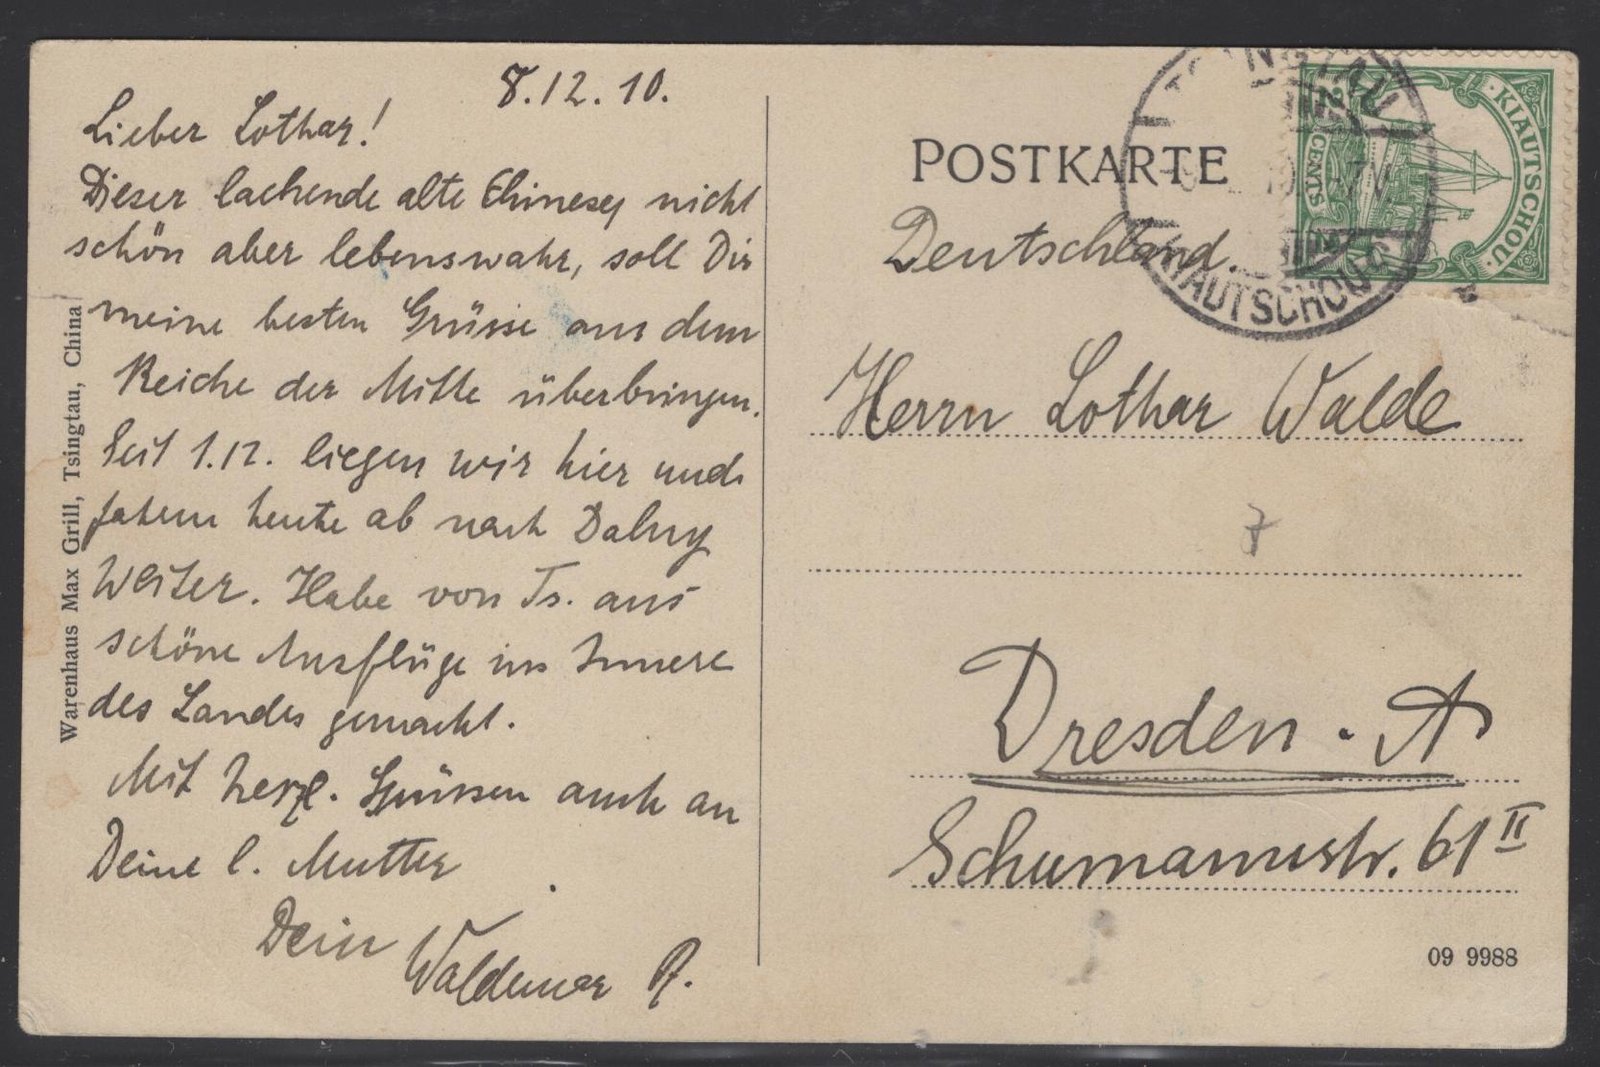 8.12.10.
Lieber Lothar!
Dieser lachende alte Chinese, nicht
schön aber lebenswahr, soll Dir
meine besten Grüsse aus dem
Reiche der Mitte überbringen.
Seit 1.12. liegen wir hier und
fahren heute ab nach Dalny
weiter. Habe von Ts. aus
schöne Ausflüge ins Innere
des Landes gemacht.
Mit herzl. Grüssen auch an
Deine l. Mutter
Dein
Waldemar R.
Warenhaus Max Grill, Tsingtau, China
POSTKARTE
TSINGTAU
KIAUTSCHOU
KIAUTSCHOU
2 CENTS
Deutschland.
Herrn Lothar Walde
7
Dresden - A
Schumannstr. 61 II
09 9988